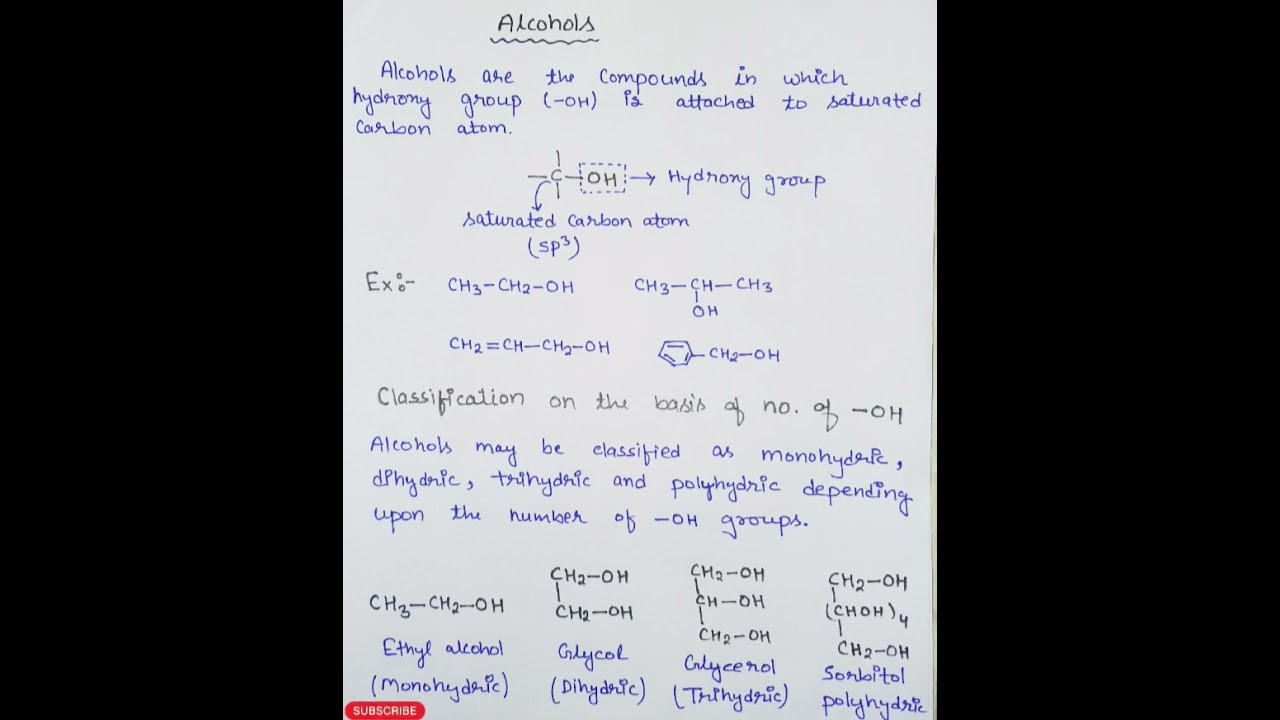 Alcohols
Alcohols are the compounds in which
hydrony group (-OH) is attached to saturated
carbon atom.
-C-OH → Hydrony group
saturated carbon atom
(sp³)
Ex:- CH3-CH2-OH CH3-CH-CH3
OH
CH2=CH-CH2-OH CH2-OH
Classification on the basis of no. of -OH
Alcohols may be classified as monohydric,
dihydric, trihydric and polyhydric depending
upon the number of -OH groups.
CH2-OH CH2-OH CH2-OH
CH3-CH2-OH CH2-OH CH-OH (CHOH)4
CH2-OH CH2-OH
Ethyl alcohol Glycol Glycerol Sorbitol
(Monohydric) (Dihydric) (Trihydric) polyhydric
SUBSCRIBE